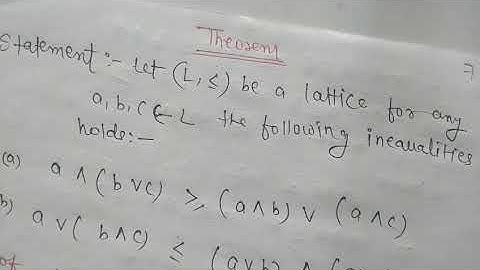 Theorem
Statement :- Let (L, ≤) be a lattice for any
a, b, c ∈ L the following inequalities
holds:-
(a) a ∧ (b ∨ c) ≥ (a ∧ b) ∨ (a ∧ c)
b) a ∨ (b ∧ c) ≤ (a ∨ b) ∧